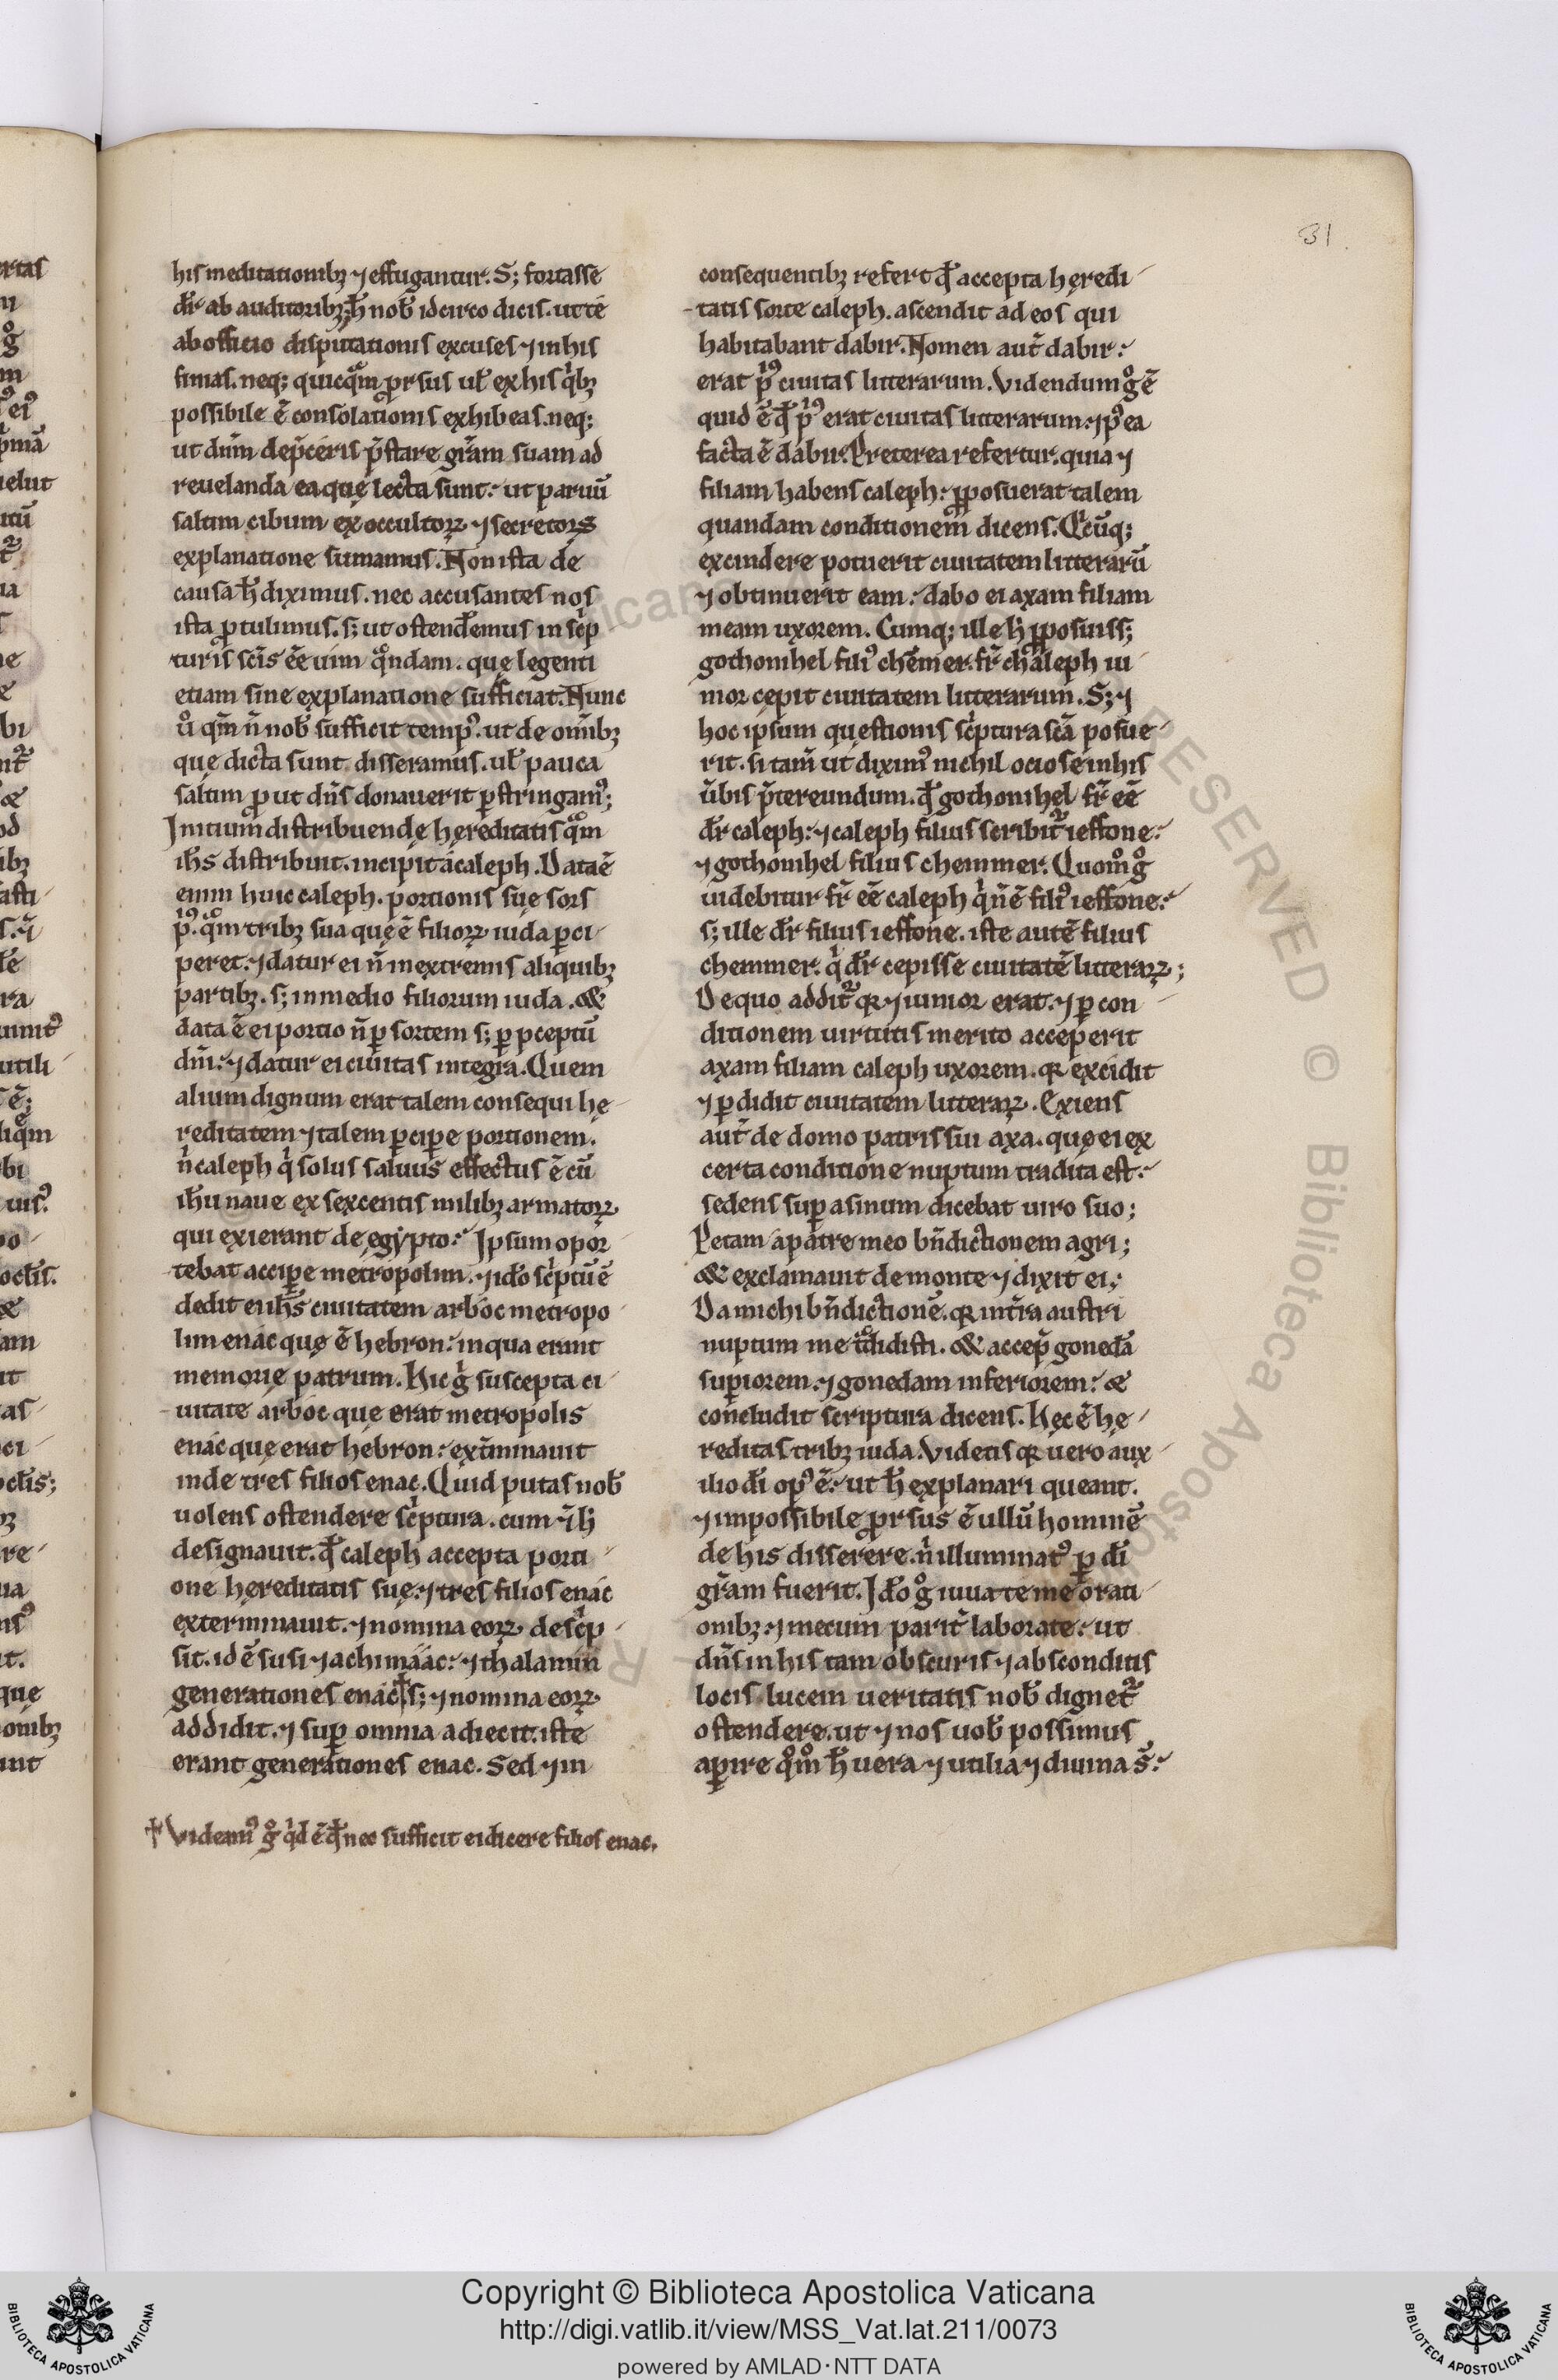 31.
his meditationibꝫ ⁊ effugantur. S; fortasse
dr̄ ab auditoribꝫ; h̄ nob̄ idcirco dicis. ut te
ab officio disputationis excuses ⁊ in his
finias. neq; quicqͣm ꝓrsus ul̄ ex his qͥbꝫ
possibile ē consolationis exhibeas. neq;
ut dn̄m dep̄ceris p̄stare gr̄am suam ad
reuelanda ea quę lecta sunt: ut paruū
saltim cibum ex occultoꝝ ⁊ secretoꝝ
explanatione sumamus. Non ista de
causa h̄ diximus. nec accusantes nos
ista ꝓtulimus. s; ut ostenderemus in sc̍p
turis sc̄is ēē uim qͣndam. quę legenti
etiam sine explanatione sufficiat. Nunc
ů qm̄ n̄ nob̄ sufficit temp᾿. ut de om̄ibꝫ
que dicta sunt disseramus. ul̄ pauca
saltim ꝓut dn̄s donauerit ꝑstringam᾿;
Initium distribuendę hereditatis qͣm
ih̄s distribuit. incipit a caleph. Data ē
enim huic caleph. portionis suę sors
p̍᾿. qͣm tribꝫ sua quę ē filioꝝ iuda ꝑci
peret. ⁊ datur ei n̄ in extremis aliquibꝫ
partibꝫ. s; in medio filiorum iuda. &
data ē ei portio n̄ ꝑ sortem s; ꝑ p̄ceptū
dn̄i: ⁊ datur ei ciuitas integra. Quem
alium dignum erat talem consequi hę
reditatem ⁊ talem ꝑcipe portionem.
n̍ caleph qͥ solus saluus effectus ē cū
ih̄u naue ex sexcentis milibꝫ armatoꝝ
qui exierant de egypto: Ipsum opor
tebat acciꝑe metropolim. ⁊ ido sc̍ptū ē
dedit ei ih̄s ciuitatem arboc metropo
lim enac quę ē hebron: in qua erant
memorię patrum. Hic g̍ suscepta ci
uitate arboc que erat metropolis
enac quę erat hebron: ext̄minauit
inde tres filios enac. Quid putas nob̄
uolens ostendere sc̍ptura. cum ⁊ h̄
designauit. qd̄ caleph accepta porti
one hęreditatis suę: ⁊ tres filios enac
exterminauit. ⁊ nomina eoꝝ desc̍p
sit. id ē susi ⁊ achimaac: ⁊ thalamin
generationes enac † s; ⁊ nomina eoꝝ
addidit. ⁊ suꝑ omnia adiecit. iste
erant generationes enac. Sed ⁊ in
† Videam᾿ g̊ qͥd ē qd̄ nec sufficit ei dicere filios enac.
consequentibꝫ refert qd̄ accepta hęredi
tatis sorte caleph. ascendit ad eos qui
habitabant dabir. Nomen aut̄ dabir:
erat p̍᾿ ciuitas litterarum. Videndum g̊ ē
quid ē qd̄ p̍᾿ erat ciuitas litterarum: ⁊ p᾿ea
facta ē dabir. Preterea refertur. quia ⁊
filiam habens caleph: ꝓposuerat talem
quandam conditionem dicens. Qͥcūq;
excindere potuerit ciuitatem litterarū
⁊ obtinuerit eam: dabo ei axam filiam
meam uxorem. Cumq; ille h̄ ꝓposuiss;
gothonihel fili᾿ chemer. fr̄ chaleph iu
nior cepit ciuitatem litterarum. S; ⁊
hoc ipsum questionis sc̍ptura sc̄a posue
rit. si tam̄ ut dixim᾿ nichil ociose in his
ūbis p̄tereundum. qd̄ gothonihel fr̄ ēē
dr̄ caleph: ⁊ caleph filius scribit᷑ ieffone:
⁊ gothonihel filius chemmer. Quom̊ g̊
uidebitur fr̄ ēē caleph qͥ n̄ ē fili᾿ ieffone:
s; ille dr̄ filius ieffone. iste autē filius
chemmer. qͥ dr̄ cepisse ciuitatē litteraꝝ;
De quo addit᷑ qꝛ ⁊ iunior erat. ⁊ ꝑ con
ditionem uirtutis merito acceperit
axam filiam caleph uxorem. qꝛ excidit
⁊ ꝑdidit ciuitatem litteraꝝ. Exiens
aut̄ de domo patris sui axa. quę ei ex
certa conditione nuptum tradita est:
sedens suꝑ asinum dicebat uiro suo;
Petam a patre meo bn̄dictionem agri;
& exclamauit de monte ⁊ dixit ei;
Da michi bn̄dictionē. qꝛ in t̄ra austri
nuptum me tͣdidisti. & accep̄ gonedā
suꝑiorem. ⁊ gonedam inferiorem: &
concludit scriptura dicens. Hęc ē hę
reditas tribꝫ iuda. Videtis qꝛ uero aux
ilio dī op᾿ ē: ut h̄ explanari queant.
⁊ impossibile ꝓrsus ē ullū hominē
de his disserere. n̍ illuminat᾿ ꝑ dī
gr̄am fuerit. Ido g̊ iuuate me orati
onibꝫ: ⁊ mecum parit̄ laborate: ut
dn̄s in his tam obscuris ⁊ absconditis
locis lucem ueritatis nob̄ dignet᷑
ostendere. ut ⁊ nos uob̄ possimus
aꝑire qͦm h̄ uera ⁊ utilia ⁊ diuina s̄:
Copyright © Biblioteca Apostolica Vaticana
http://digi.vatlib.it/view/MSS_Vat.lat.211/0073
powered by AMLAD·NTT DATA
BIBLIOTECA APOSTOLICA VATICANA
BIBLIOTECA APOSTOLICA VATICANA